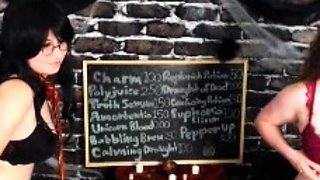 Charm 100 Replenish Potion 50
Polyjuice 250 Draught of Dead 200
Truth Serum 150 Confusing Potion 50
Amortentia 150 Euphoria
Unicorn Blood 200 Elixir
Babbling Brew 50 Pepperup
Calming Draught 100 50